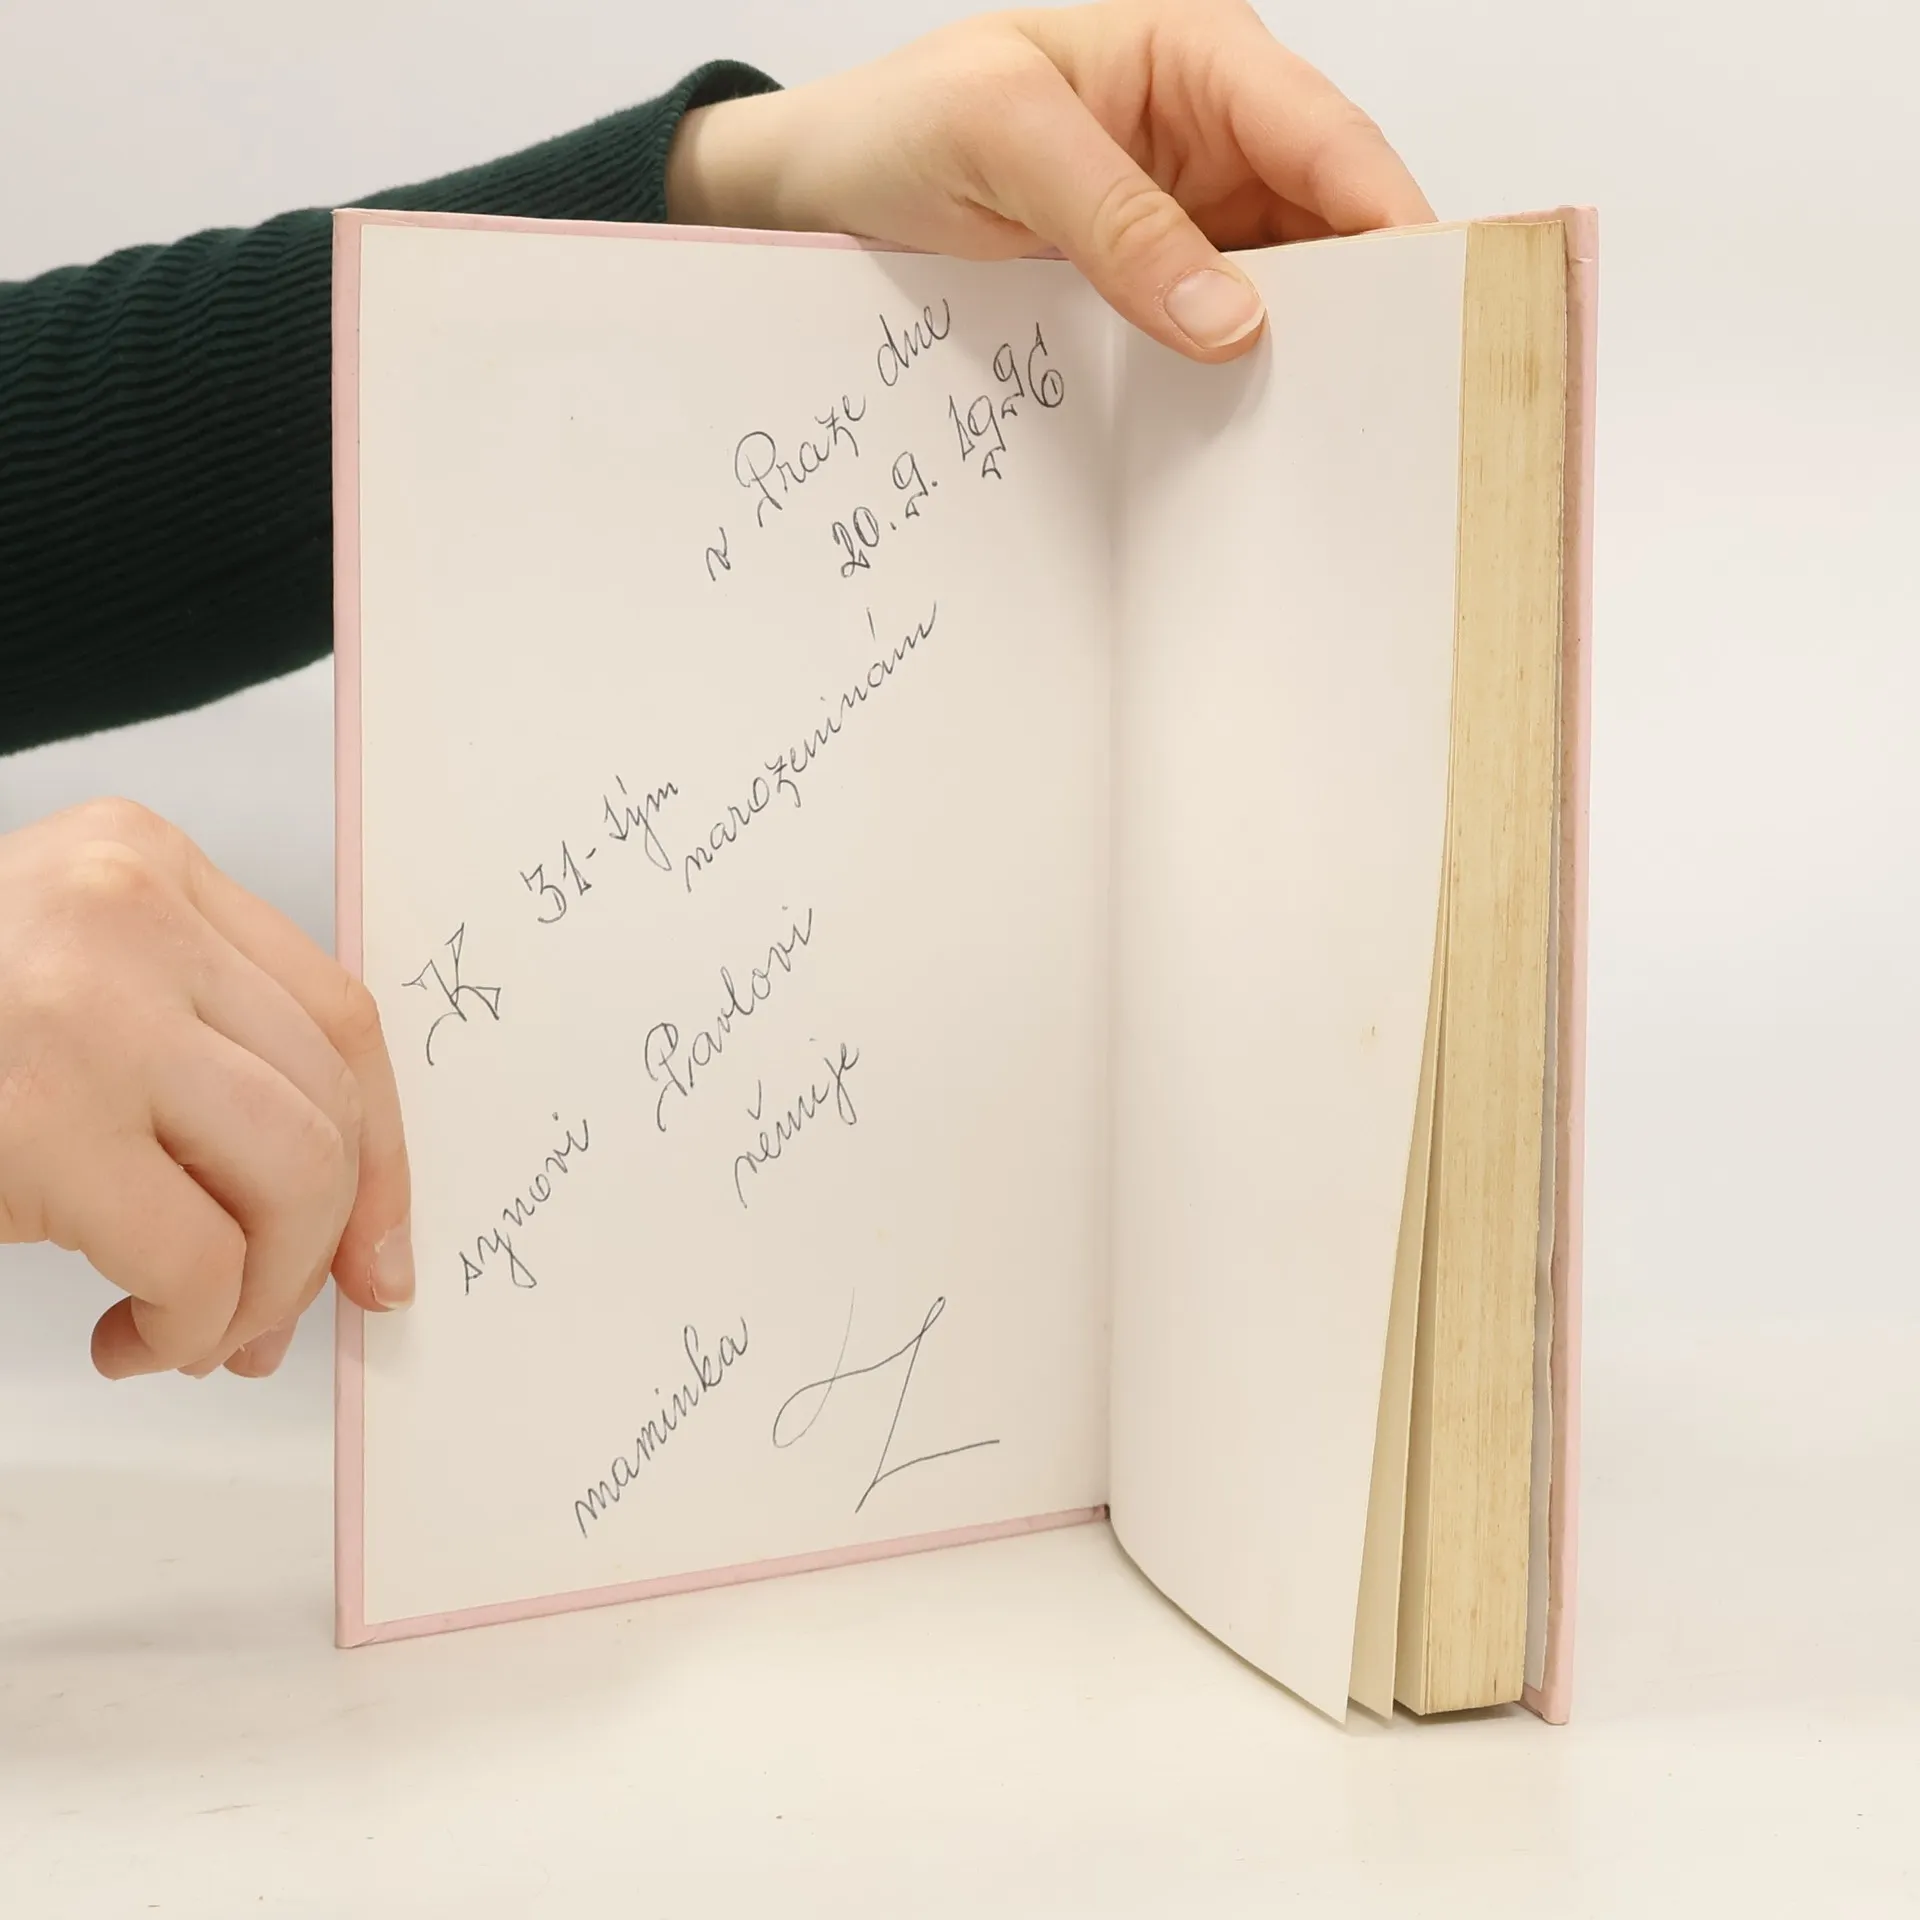 v Praze dne
20.9. 1996
K 31-tým
narozeninám
synovi Pavlovi
věnuje
maminka